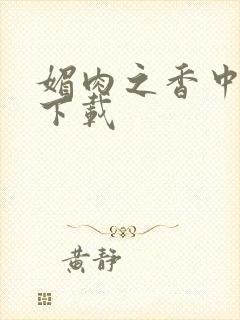 媚肉之香中
下載
黃靜